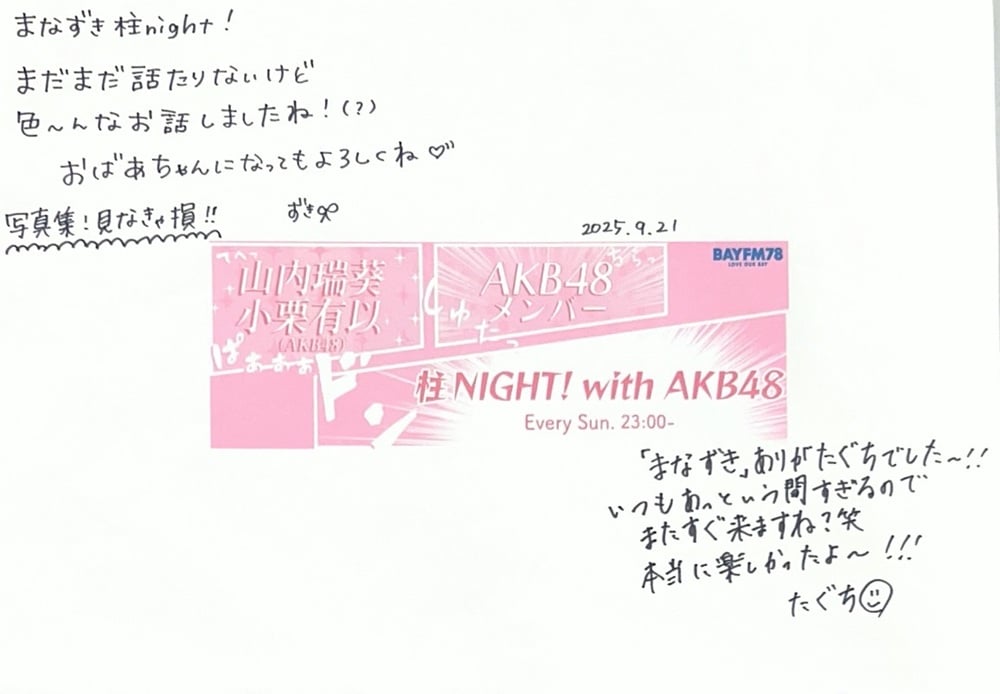 まなずき柱night!
まだまだ話たりないけど
色〜んなお話しましたね!(?)
おばあちゃんになってもよろしくね♡
写真集!見なきゃ損!!
ずき
2025.9.21
てへっ
山内瑞葵
小栗有以
(AKB48)
ぱぁぁぁぁ
ド
AKB48
メンバー
しゅたっ
BAYFM78
LOVE OUR BAY
柱NIGHT! with AKB48
Every Sun. 23:00-
「まなずき」ありがたぐちでした〜!!
いつもあっという間すぎるので
またすぐ来ますね?笑
本当に楽しかったよ〜!!!
たぐち